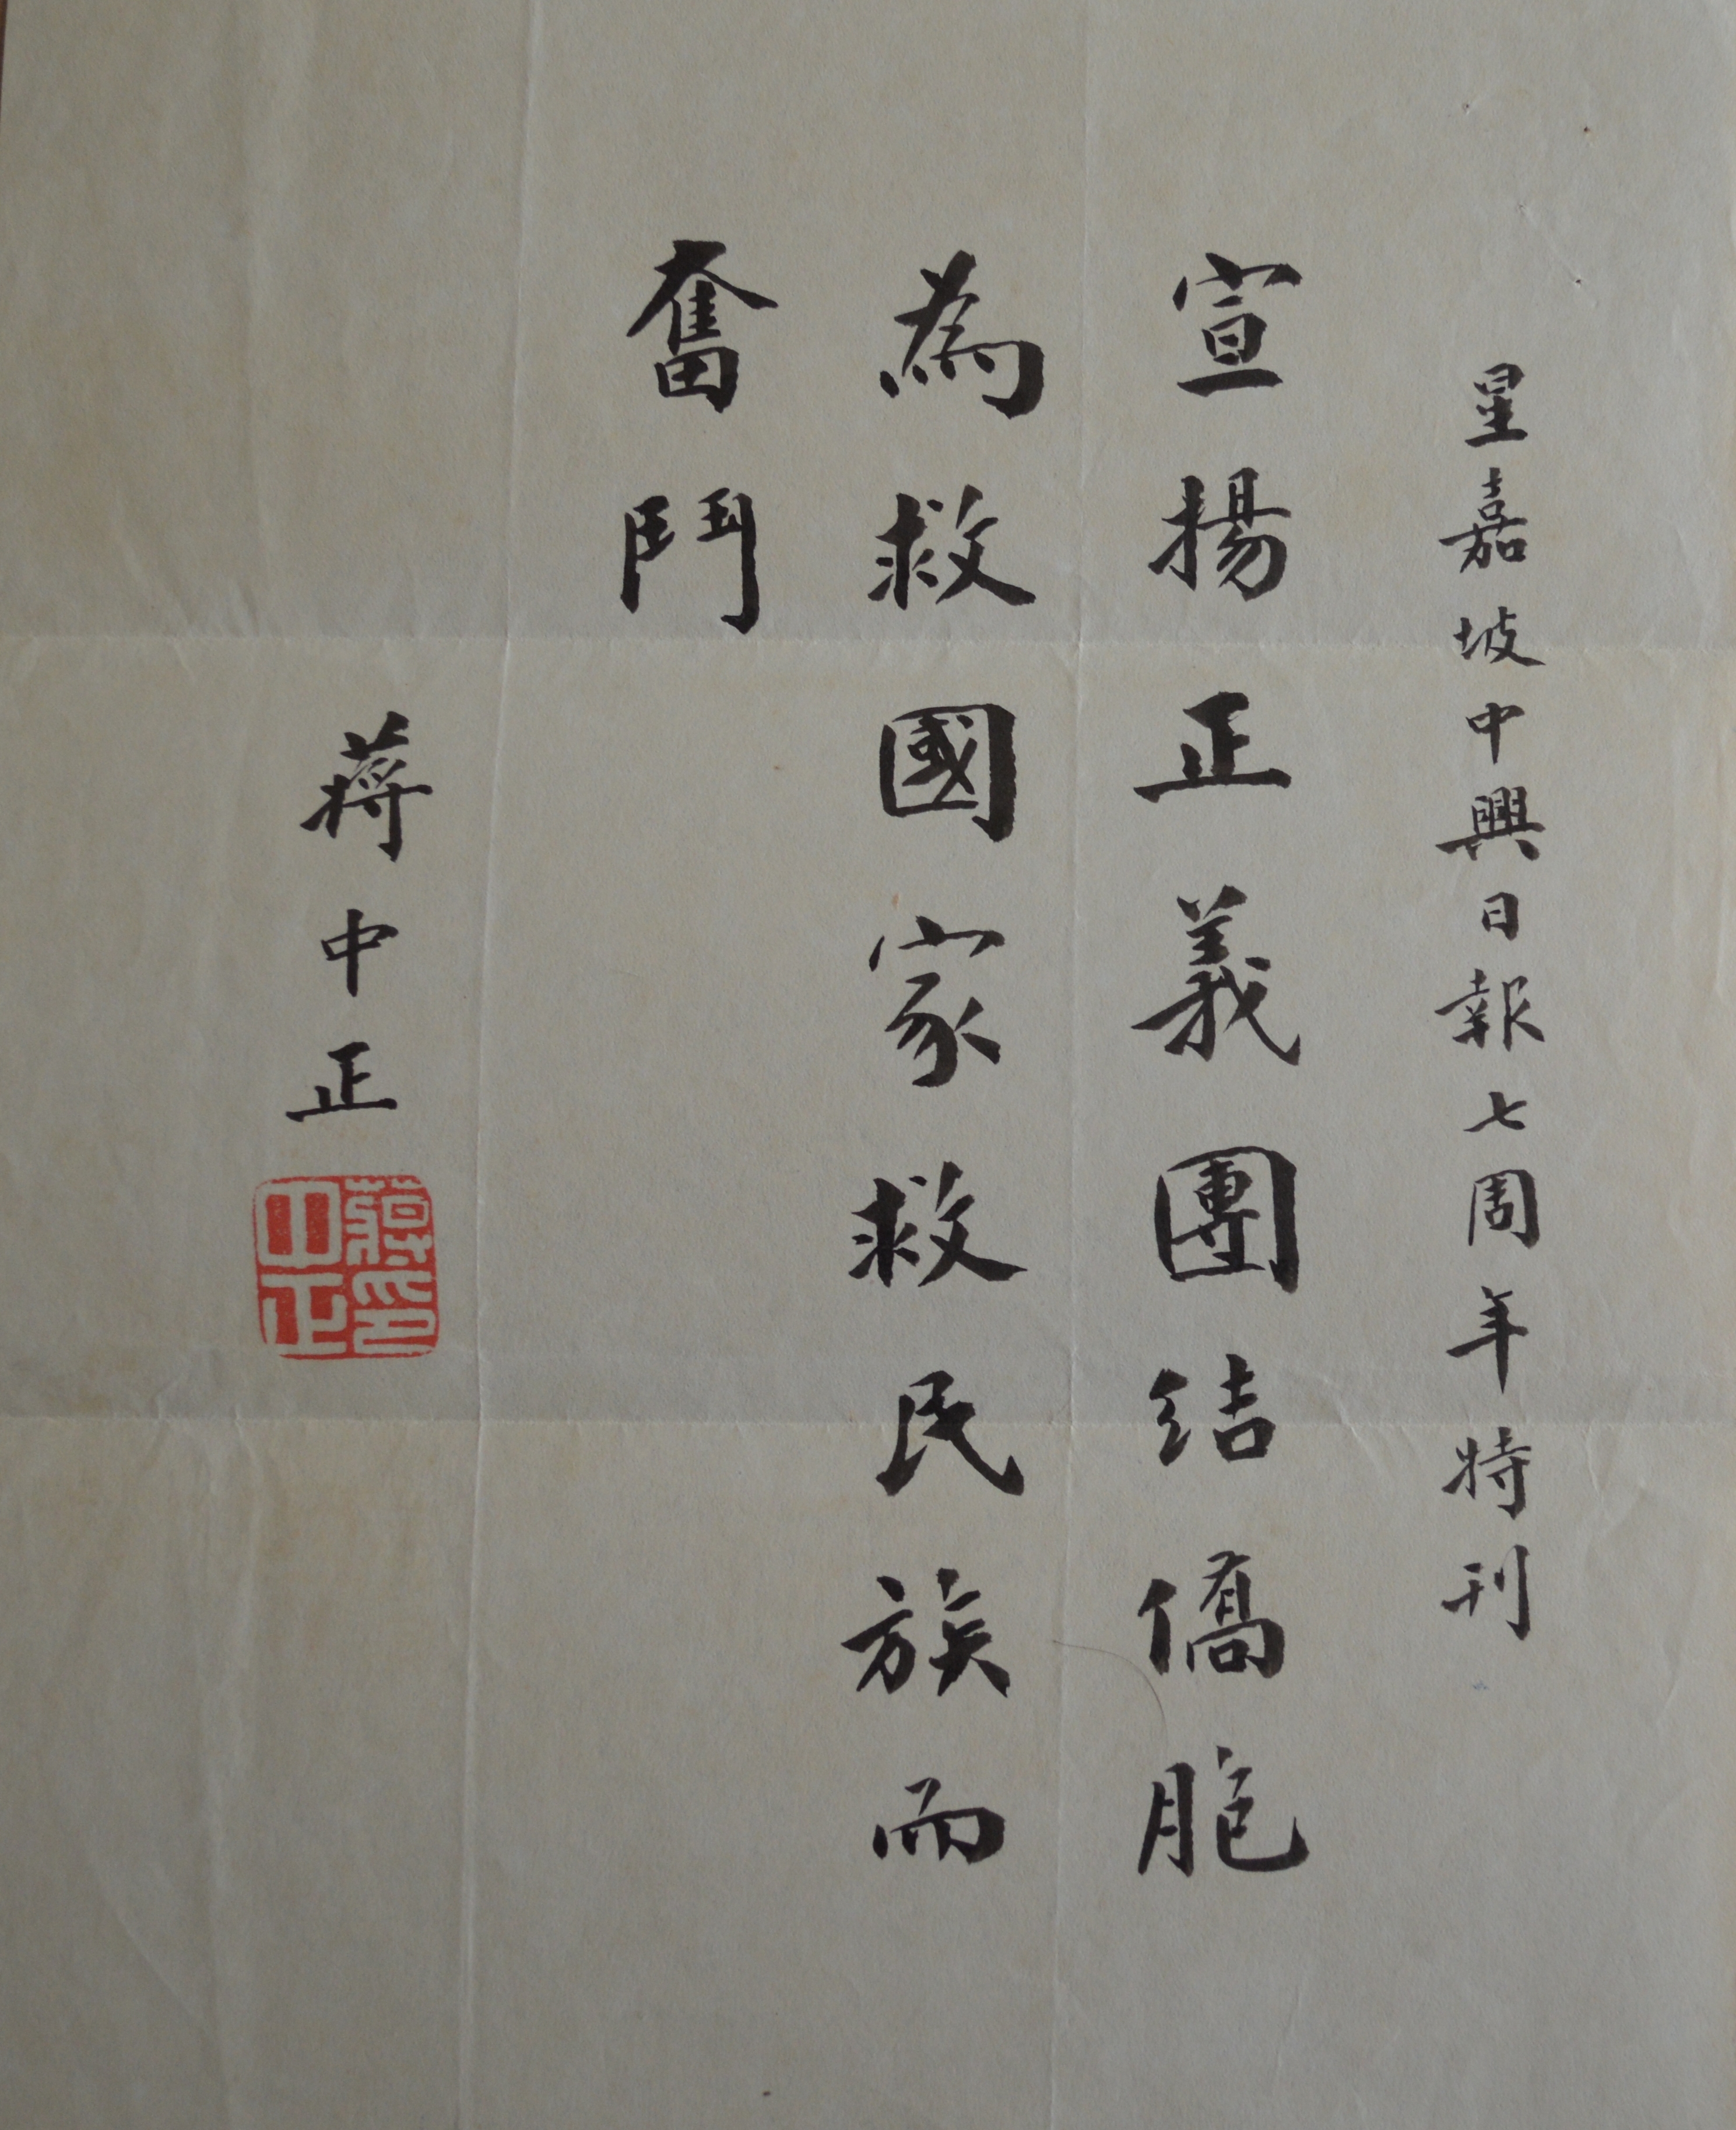 星嘉坡中興日報七周年特刊
宣揚正義團結僑胞
為救國家救民族而
奮鬥
蔣中正
蔣印中正